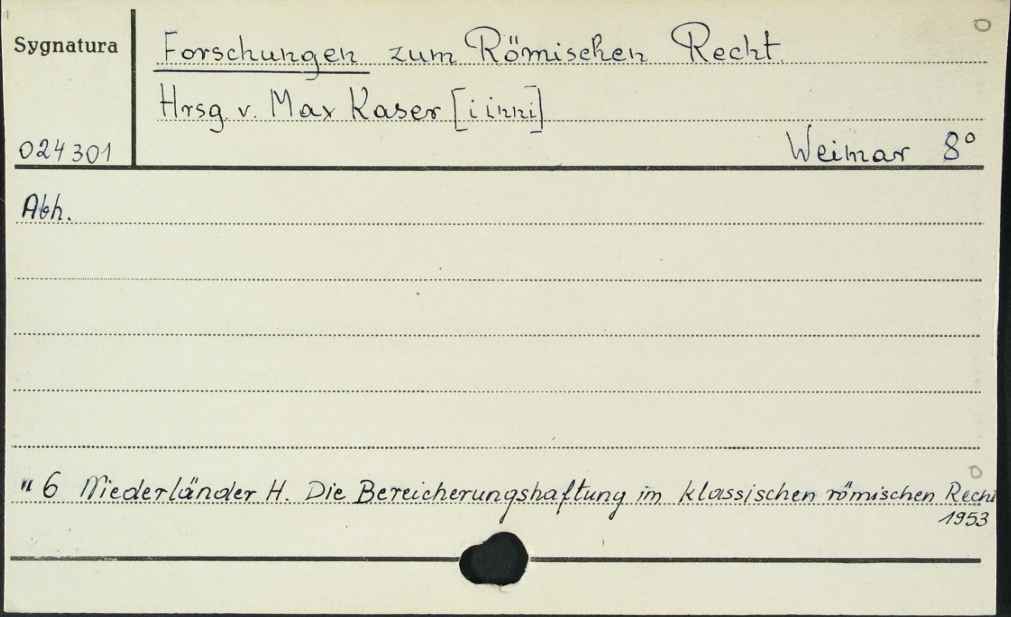 Sygnatura
Forschungen zum Römischen Recht
Hrsg. v. Max Kaser [i inni]
024301
Weimar 8°
Abh.
" 6 Niederländer H. Die Bereicherungshaftung im klassischen römischen Recht
1953